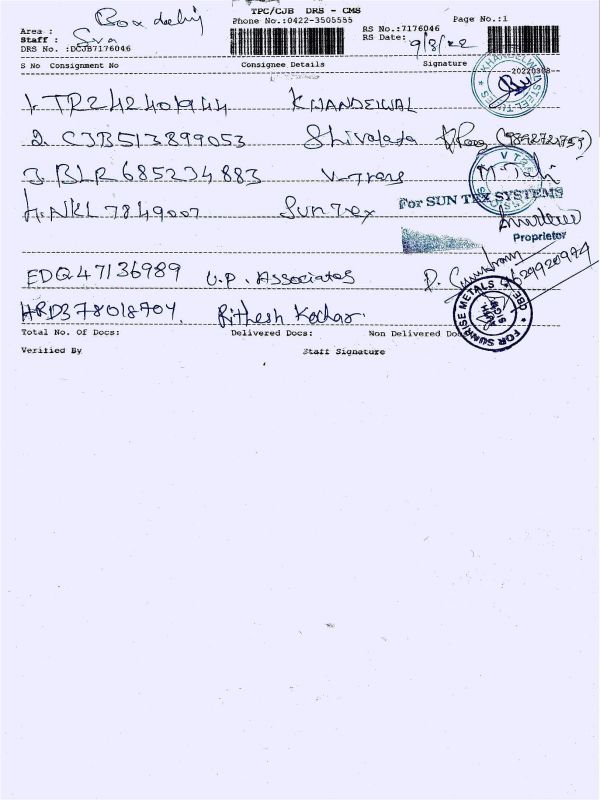 Box delhi
TPC/CJB DRS - CMS
Phone No.:0422-3505555
Page No.:1
Area :
Staff : Siva
DRS No. :DCJB7176046
RS No.:7176046
RS Date: 9/3/22
S No Consignment No Consignee Details Signature
20220308
1. TR242401944 KHANDELWAL
2. CJB513899053 Shivalada (9842721759)
3. BLR685234883 V-Trans
4. NKL7849007 Sun Tex
For SUN TEX SYSTEMS
Proprietor
EDQ47136989 U.P. Associates 9629920994
HRD378018704 Rithesh Kochar
FOR SUNRISE METALS
Total No. Of Docs: Delivered Docs: Non Delivered Do
Verified By Staff Signature